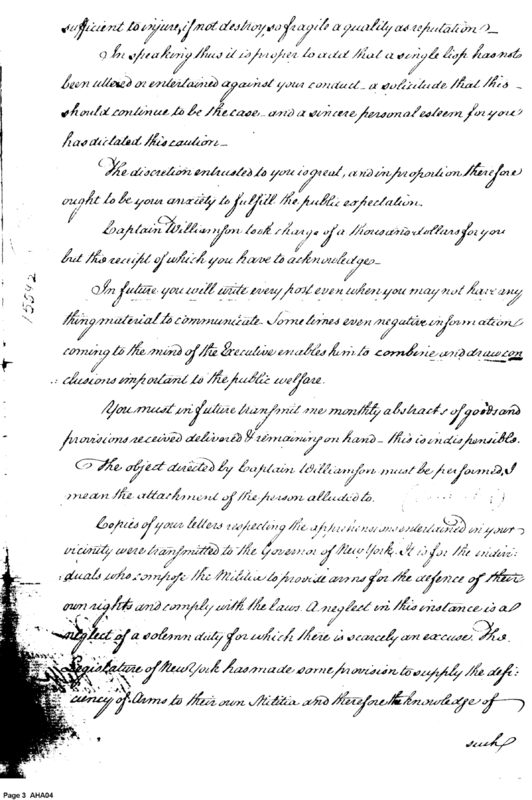 sufficient to injure, if not destroy, so fragile a quality as reputation –
In speaking thus it is proper to add that a single lisp has not
been uttered or entertained against your conduct – a solicitude that this
should continue to be the case – and a sincere personal esteem for you
has dictated this caution –
The discretion entrusted to you is great, and in proportion therefore
ought to be your anxiety to fulfill the public expectation.
Captain Williamson took charge of a thousand dollars for you
but the receipt of which you have to acknowledge –
In future you will write every post even when you may not have any
thing material to communicate. Sometimes even negative information
coming to the mind of the Executive enables him to combine and draw con
:clusions important to the public welfare.
You must in future transmit me monthly abstracts of goods and
provisions received delivered & remaining on hand – this is indispensible.
The object directed by Captain Williamson must be performed, I
mean the attachment of the person alluded to.
Copies of your letters respecting the apprehensions entertained in your
vicinity were transmitted to the Governor of New York. It is for the indivi:
:duals who compose the Militia to provide arms for the defence of their
own rights and comply with the laws. A neglect in this instance is a
neglect of a solemn duty for which there is scarcely an excuse. The
Legislature of New York has made some provision to supply the defi:
:ciency of Arms to their own Militia and therefore the knowledge of
such
15542
Page 3 AHA04